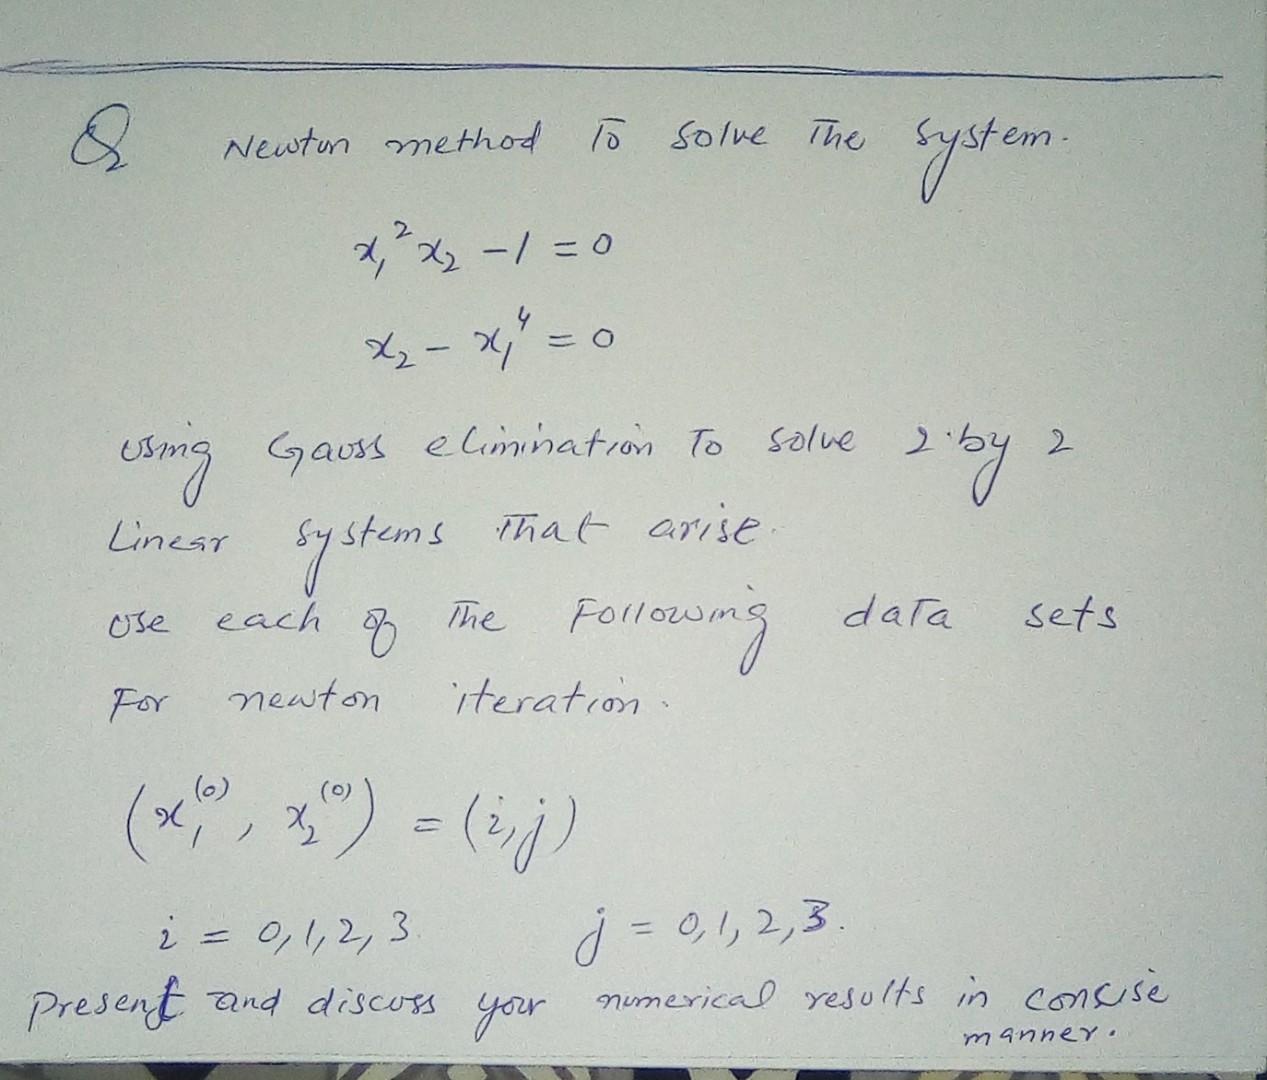 Q Newton method To solve The system.
x₁²x₂ - 1 = 0
x₂ - x₁⁴ = 0
using Gauss elimination To solve 2 by 2
Linear systems That arise.
use each of The Following data sets
For newton iteration.
(x₁⁽⁰⁾, x₂⁽⁰⁾) = (i, j)
i = 0, 1, 2, 3. j = 0, 1, 2, 3.
present and discuss your numerical results in consise
manner.